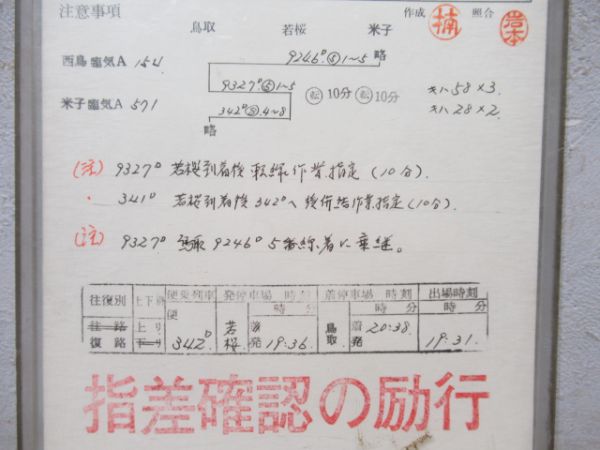 注意事項 作成 楠 照合 岩本
鳥取 若桜 米子
西鳥臨気A 154 9246D ⑤1~5 略
9327D ⑤1~5 転 10分 転 10分 キハ58×3.
米子臨気A 571 342D ③.4~8 キハ28×2.
略
(注) 9327D 若桜到着後 転線作業指定(10分).
・ 341D 若桜到着後342Dへ後併結作業指定(10分).
(注) 9327D 鳥取 9246D 5番線着に乗継。
往復別 上下別 便乗列車 発停車場 時刻 着停車場 時刻 出場時刻
便 時 分 時 分 時 分
往路 上り 若 着 鳥 着 20:38.
復路 下り 342D 桜 発 19:36. 取 発 19:31.
指差確認の励行